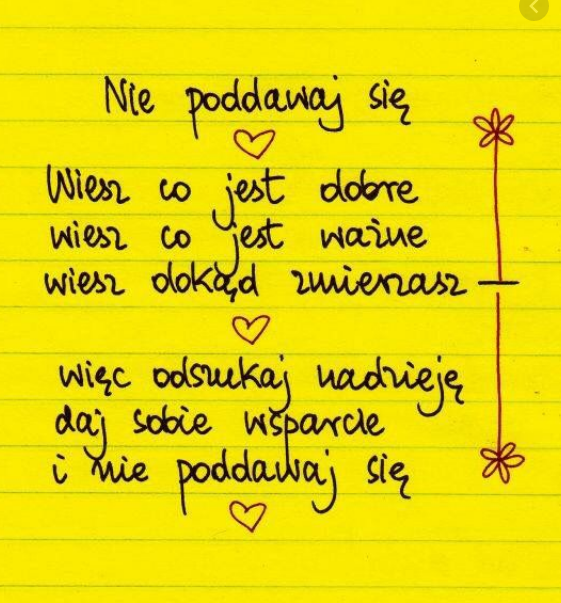 Nie poddawaj się
Wiesz co jest dobre
wiesz co jest ważne
wiesz dokąd zmierzasz –
więc odszukaj nadzieję
daj sobie wsparcie
i nie poddawaj się